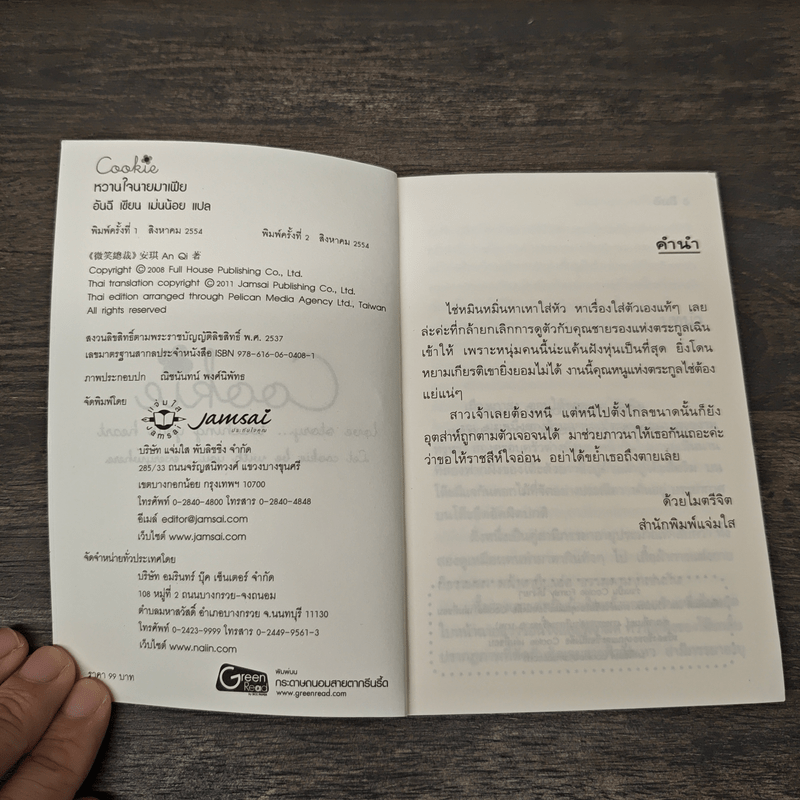 Cookie
หวานใจนายมาเฟีย
อันฉี เขียน เม่นน้อย แปล
พิมพ์ครั้งที่ 1 สิงหาคม 2554
พิมพ์ครั้งที่ 2 สิงหาคม 2554
《微笑總裁》安琪 An Qi 著
Copyright © 2008 Full House Publishing Co., Ltd.
Thai translation copyright © 2011 Jamsai Publishing Co., Ltd.
Thai edition arranged through Pelican Media Agency Ltd., Taiwan
All rights reserved
สงวนลิขสิทธิ์ตามพระราชบัญญัติลิขสิทธิ์ พ.ศ. 2537
เลขมาตรฐานสากลประจำหนังสือ ISBN 978-616-06-0408-1
ภาพประกอบปก ณิชนันทน์ พงศ์นิพัทธ
จัดพิมพ์โดย
แจ่มใส
Jamsai
Jamsai
บริษัท แจ่มใส พับลิชชิ่ง จำกัด
285/33 ถนนจรัญสนิทวงศ์ แขวงบางขุนศรี
เขตบางกอกน้อย กรุงเทพฯ 10700
โทรศัพท์ 0-2840-4800 โทรสาร 0-2840-4848
อีเมล์ editor@jamsai.com
เว็บไซต์ www.jamsai.com
จัดจำหน่ายทั่วประเทศโดย
บริษัท อมรินทร์ บุ๊ค เซ็นเตอร์ จำกัด
108 หมู่ที่ 2 ถนนบางกรวย-จงถนอม
ตำบลมหาสวัสดิ์ อำเภอบางกรวย จ.นนทบุรี 11130
โทรศัพท์ 0-2423-9999 โทรสาร 0-2449-9561-3
เว็บไซต์ www.naiin.com
ราคา 99 บาท
Green Read
พิมพ์บน
กระดาษถนอมสายตากรีนรี้ด
www.greenread.com
คำนำ
ไช่หมินหมิ่นหาเหาใส่หัว หาเรื่องใส่ตัวเองแท้ๆ เลย
ล่ะค่ะที่กล้ายกเลิกการดูตัวกับคุณชายรองแห่งตระกูลเฉิน
เข้าให้ เพราะหนุ่มคนนี้น่ะแค้นฝังหุ่นเป็นที่สุด ยิ่งโดน
หยามเกียรติเขายิ่งยอมไม่ได้ งานนี้คุณหนูแห่งตระกูลไช่ต้อง
แย่แน่ๆ
สาวเจ้าเลยต้องหนี แต่หนีไปตั้งไกลขนาดนั้นก็ยัง
อุตส่าห์ถูกตามตัวเจอจนได้ มาช่วยภาวนาให้เธอกันเถอะค่ะ
ว่าขอให้ราชสีห์ใจอ่อน อย่าได้ขย้ำเธอถึงตายเลย
ด้วยไมตรีจิต
สำนักพิมพ์แจ่มใส